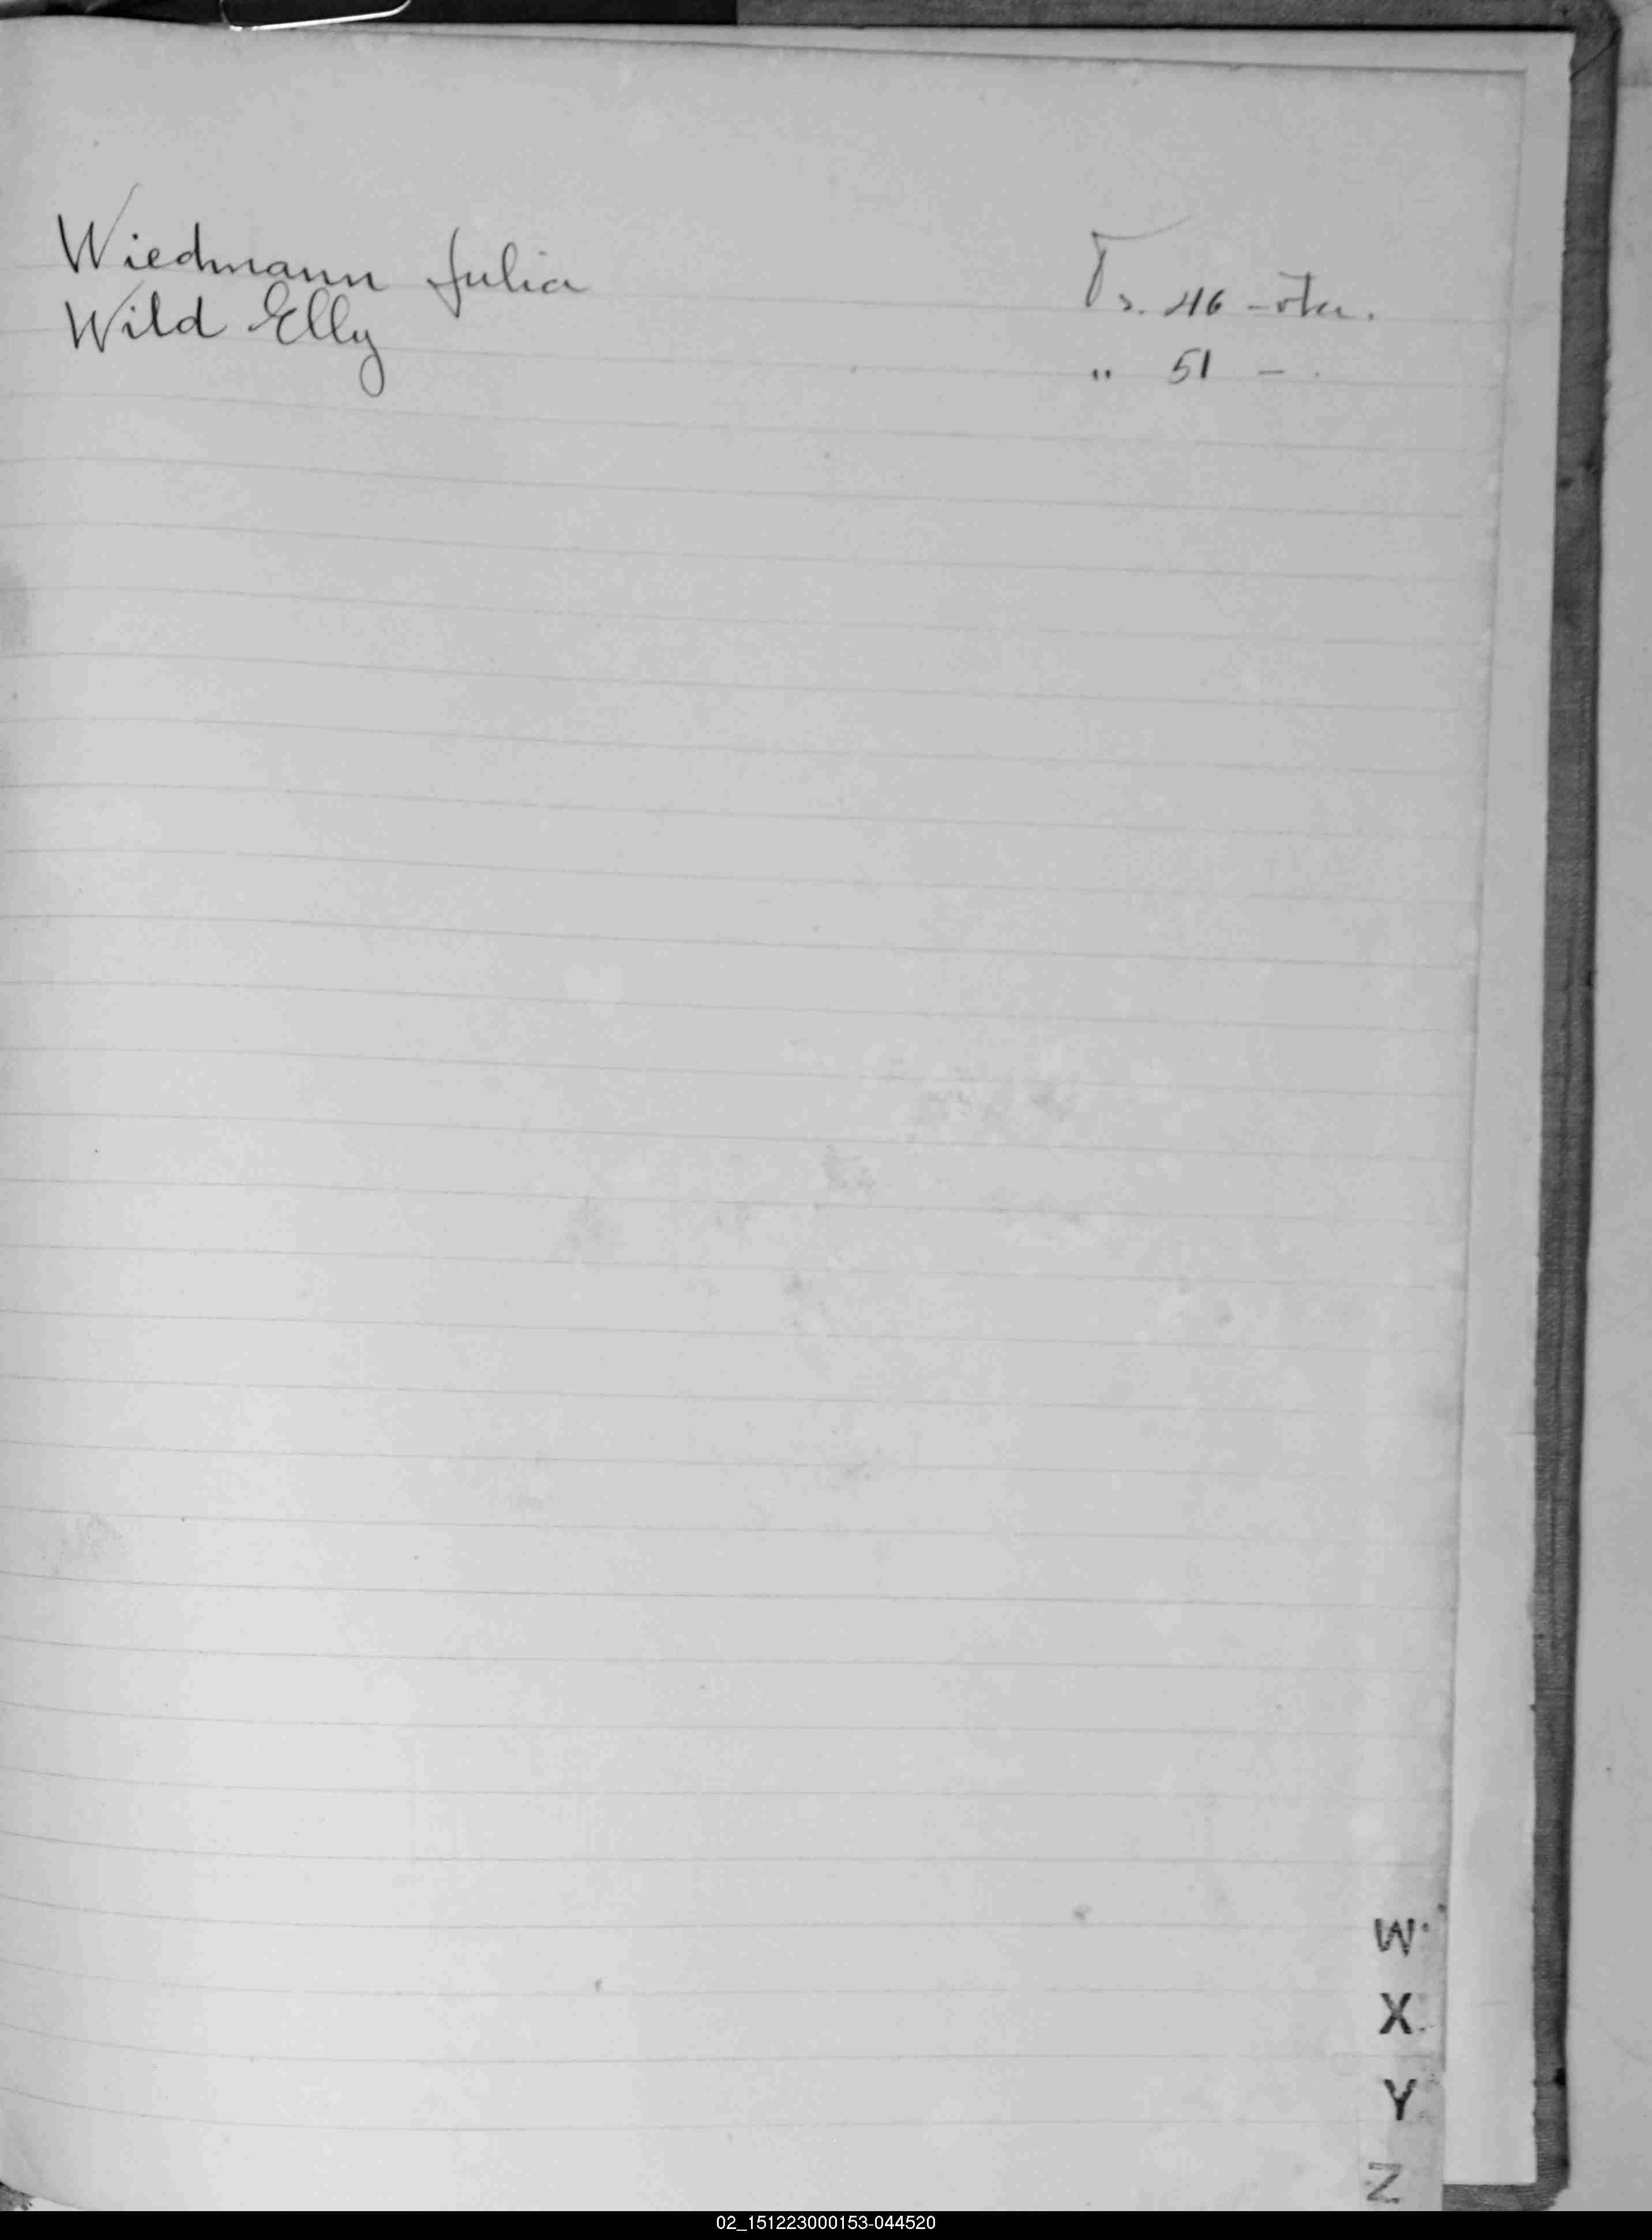 Wiedmann Julia
Wild Elly
T. s. 46 -
„ 51 - .
W.
X
Y
Z
02_151223000153-044520